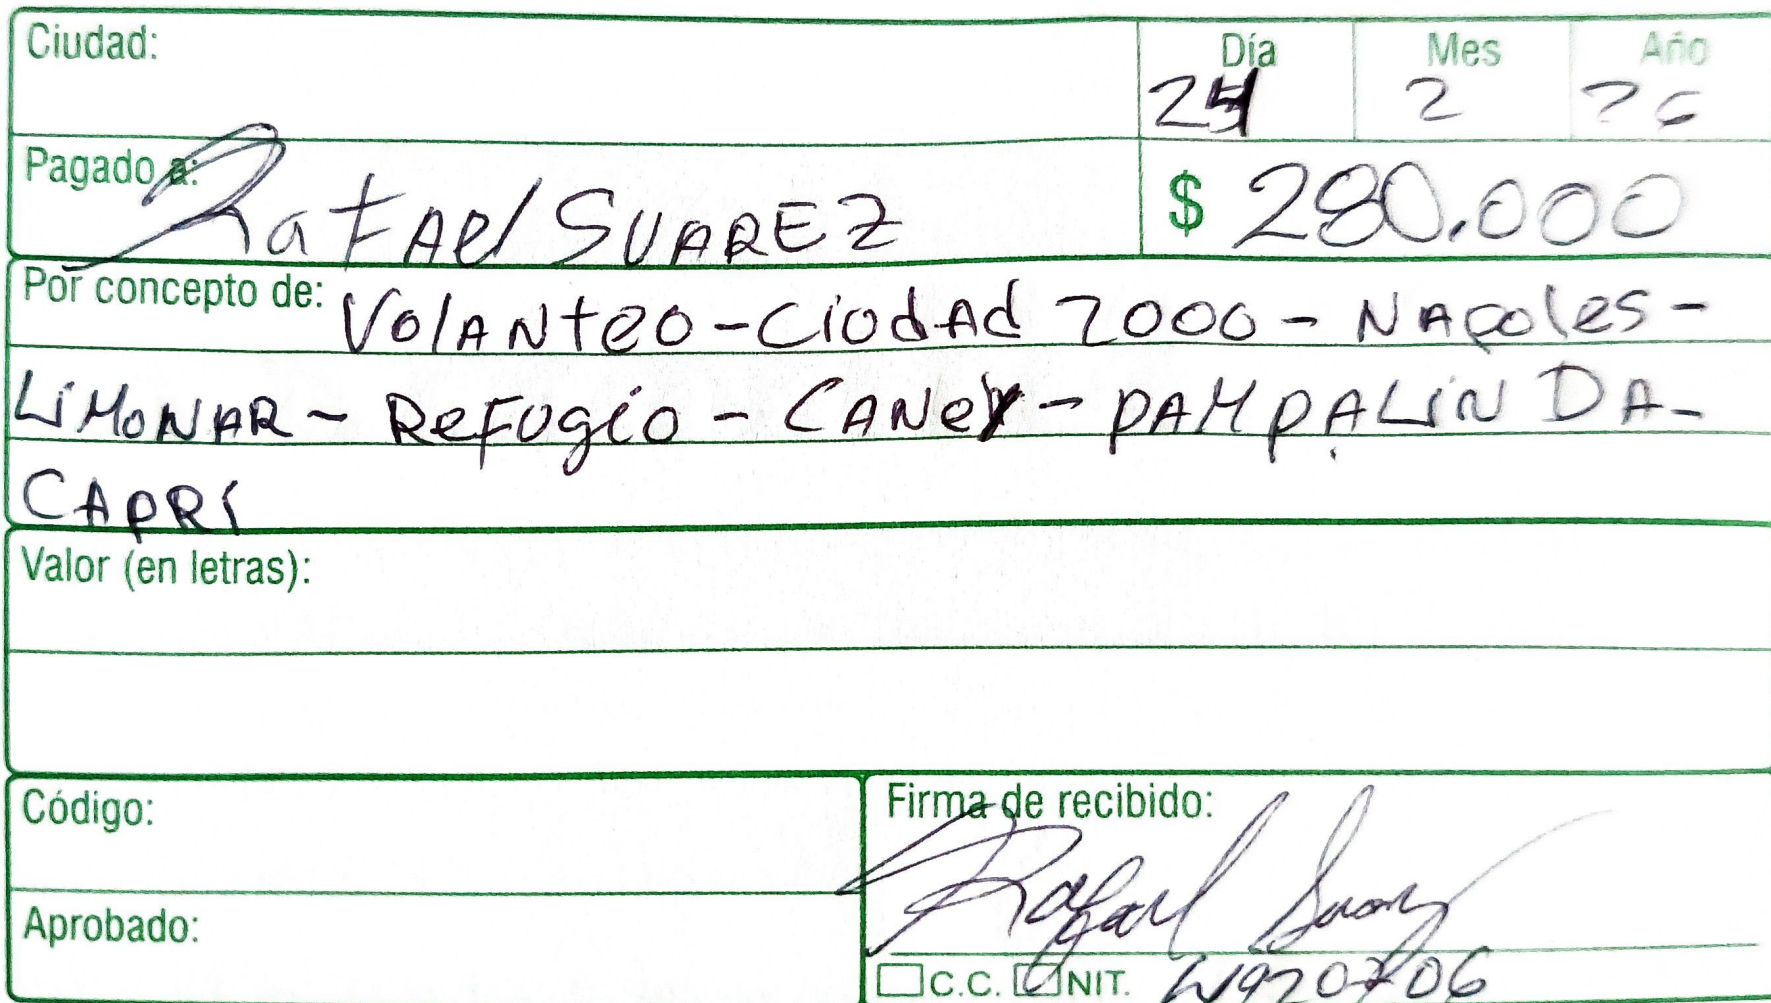 Ciudad:
Día Mes Año
2 26
Pagado a: Rafael SUAREZ
$ 280.000
Por concepto de: VolANteo - CiudAd 2000 - NApoles -
LiMoNAR - ReFugio - CANey - pAMpALiNDA -
CApRi
Valor (en letras):
Código:
Firma de recibido:
Rafael Suarez
Aprobado:
C.C. NIT.